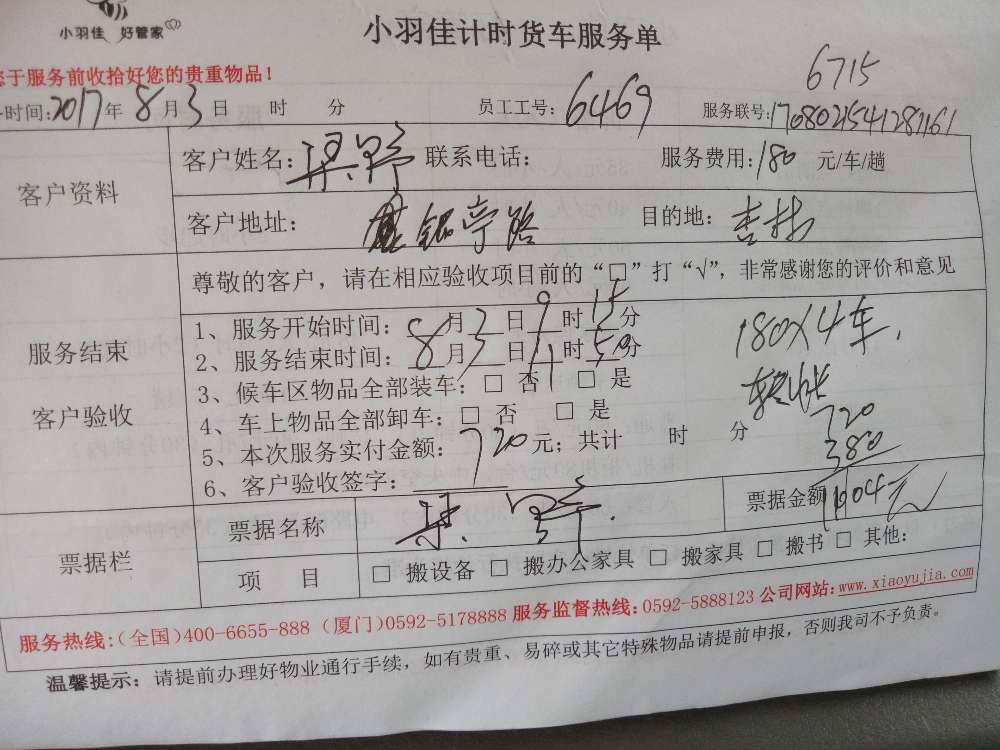 小羽佳 好管家
小羽佳计时货车服务单
6715
您于服务前收拾好您的贵重物品！
时间：2017年8月3日 时 分 员工工号：6469 服务联号：1708021541281161
客户资料
客户姓名： 联系电话： 服务费用：180 元/车/趟
客户地址： 目的地：吉林
尊敬的客户，请在相应验收项目前的“□”打“√”，非常感谢您的评价和意见
服务结束
客户验收
1、服务开始时间：8月3日9时15分
2、服务结束时间：8月3日11时50分
3、候车区物品全部装车：□ 否 □ 是
4、车上物品全部卸车：□ 否 □ 是
5、本次服务实付金额：720元；共计 时 分
6、客户验收签字：
180×4车.
720
380
票据栏
票据名称
票据金额 1104元
项 目 □ 搬设备 □ 搬办公家具 □ 搬家具 □ 搬书 □ 其他：
服务热线：（全国）400-6655-888（厦门）0592-5178888 服务监督热线：0592-5888123 公司网站：www.xiaoyujia.com
温馨提示：请提前办理好物业通行手续，如有贵重、易碎或其它特殊物品请提前申报，否则我司不予负责。